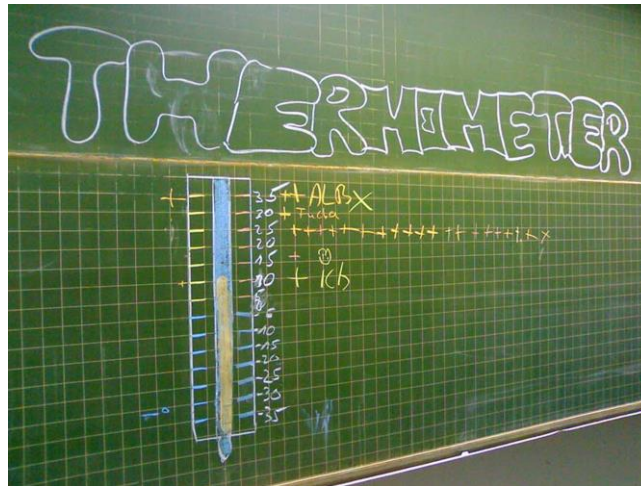 THERMOMETER
+ 35 ++ ALB X
30 + Tucba
25 +++++++++++++++++++++X
20
15 + ☺
+ 10 + Ich
5
-5
-10
-15
-20
-25
-30
1° -35